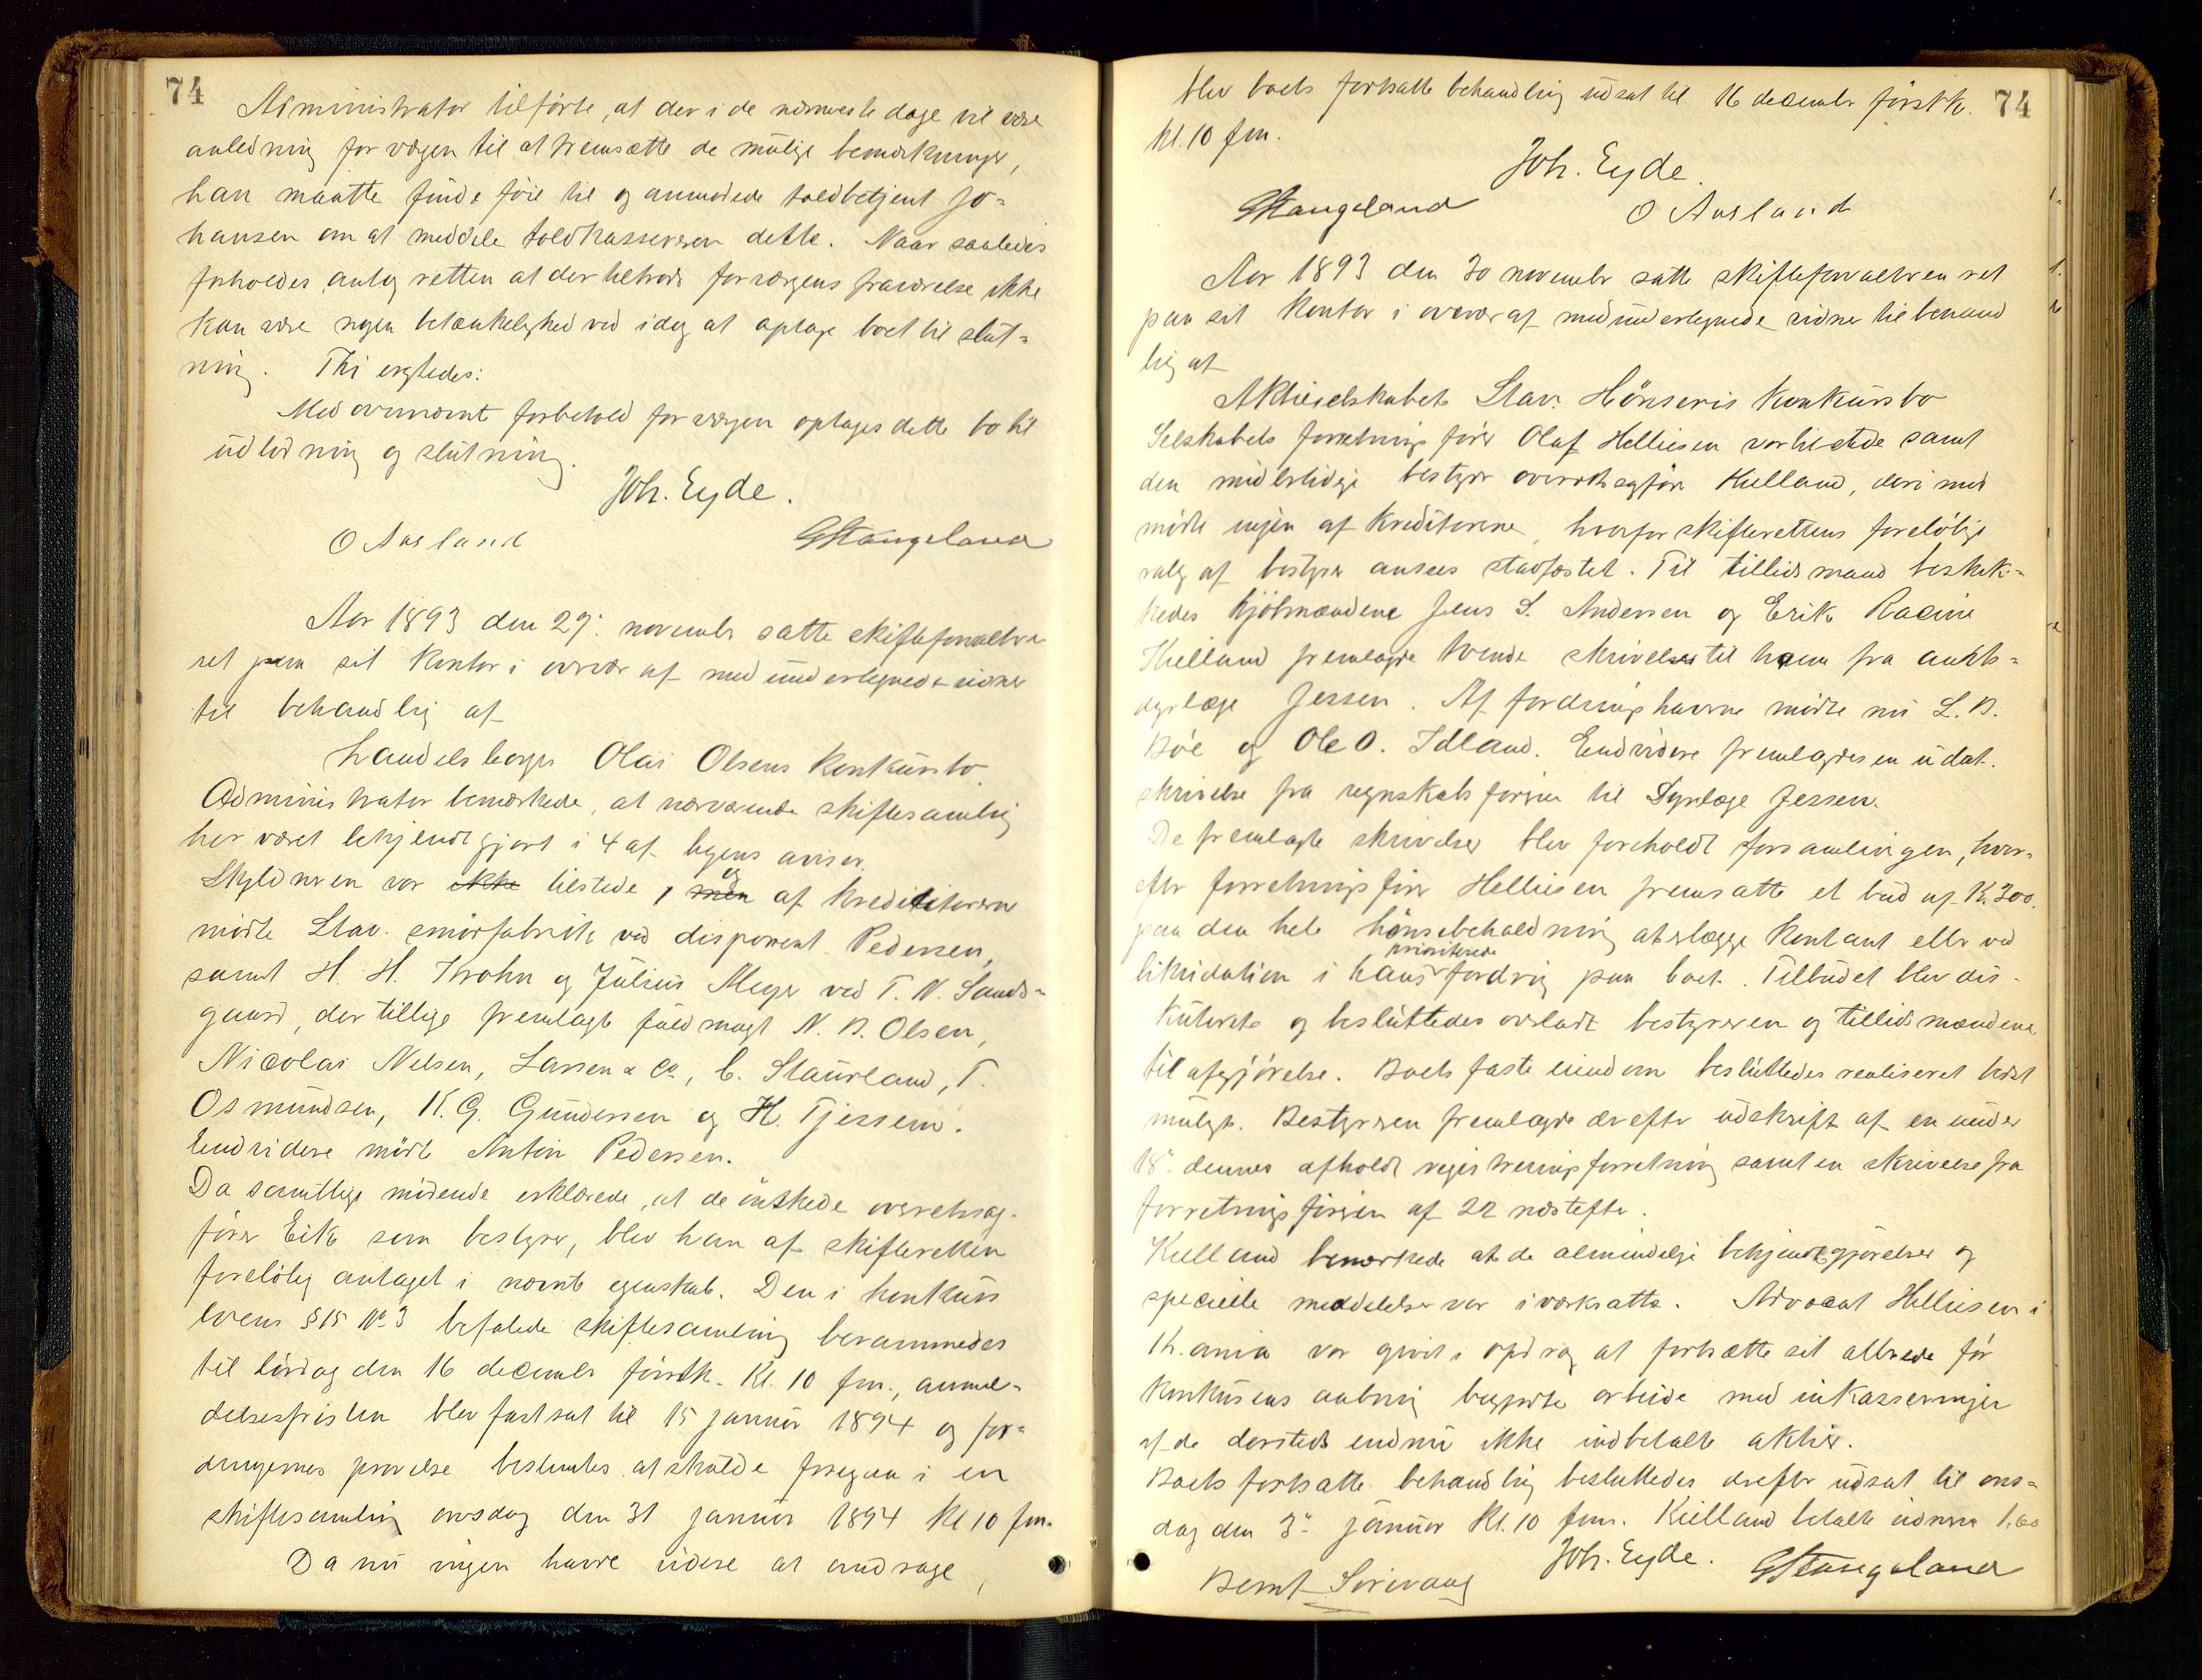 74
Administrator tilførte, at der i de nærmeste dage vil være
anledning for værgen til at fremsætte de mulige bemærkninger,
han maatte finde føie til og anmodede toldbetjent Jo-
hansen om at meddele toldkassereren dette. Naar saaledes
forholdes, antog retten at der tiltrods for værgens fraværelse ikke
kan være nogen betænkelighed ved idag at optage boet til slut-
ning. Thi eragtedes:
Med overnævnt forbehold for værgen optages dette bo til
udlodning og slutning.
Joh. Eyde.
O Aasland GStangeland
Aar 1893 den 29. novembr satte skifteforvaltren
ret paa sit kontor i overvær af medundertegnede vidner
til behandling af
handelsborger Olai Olsens konkursbo.
Administrator bemærkede, at nærværende skiftesamling
har været bekjendtgjort i 4 af byens aviser.
Skyldneren var ikke tilstede, men og af kreditorerne
mødte Stav. smørfabrik ved disponent Pedersen,
samt H. H. Krohn og Julius Meyer ved T. N. Sands-
gaard, der tillige fremlagte fuldmagt N. B. Olsen,
Nicolai Nelsen, Larsen & Co, C. Staurland, T.
Osmundsen, K. G. Gundersen og H. Tjessem.
Endvidere mødte Anton Pedersen.
Da samtlige mødende erklærede, at de ønskede overretssag-
fører Eik som bestyrer, blev han af skifteretten
foreløbig antaget i nævnte egenskab. Den i konkurs
lovens § 15 No 3 befalede skiftesamling berammedes
til lørdag den 16 decembr førstk. Kl. 10 fm., anmel-
delsesfristen blev fastsat til 15 januar 1894 og for-
dringernes prøvelse bestemtes at skulde foregaa i en
skiftesamling onsdag den 31 januar 1894 kl 10 fm.
Da nu ingen havde videre at andrage,
74
blev boets fortsatte behandling udsat til 16 decembr førstk.
kl. 10 fm.
Joh. Eyde.
GStangeland O Aasland
Aar 1893 den 30 novembr satte skifteforvaltren ret
paa sit kontor i overvær af medundertegnede vidner til behand
ling af
Aktieselskabet Stav. Hønseris konkursbo
Selskabets forretningsfører Olaf Helliesen var tilstede samt
den midlertidige bestyrer overretssagfører Kielland, derimod
mødte ingen af kreditorerne, hvorfor skifterettens foreløbige
valg af bestyrer ansees stadfæstet. Til tillidsmænd beskik-
kedes kjøbmændene Jens S. Andersen og Erik Racine
Kielland fremlagde tvende skrivelser til ham fra amts-
dyrlæge Jessen. Af fordringshaverne mødte nu L. B.
Bøe og Ole O. Idland. Endvidere fremlagdes en udat.
skrivelse fra regnskabsføreren til Dyrlæge Jessen.
De fremlagte skrivelser blev foreholdt forsamlingen, hvor-
efter forretningsfører Helliesen fremsatte et bud af K. 300
paa den hele hønsebeholdning at erlægge kontant eller ved
likvidation i hans prioriterede fordring paa boet. Tilbudet blev dis-
kuteret og besluttedes overladt bestyreren og tillidsmændene
til afgjørelse. Boets faste eiendom besluttedes realiseret bedst
muligt. Bestyreren fremlagde derefter udskrift af en under
18de dennes afholdt registreringsforretning samt en skrivelse fra
forretningsføreren af 22 næstefter.
Kielland bemærkede at de almindelige bekjendtgjørelser og
specielle meddelelser var iværksatte. Advocat Helliesen i
K.ania var givet i opdrag at fortsætte sit allerede før
konkursens aabning begyndte arbeide med inkasseringen
af de dersteds endnu ikke indbetalte aktier.
Boets fortsatte behandling besluttedes derefter udsat til ons-
dag den 3de januar kl. 10 fm. Kielland betalte vidnerne 1,60
Joh. Eyde. GStangeland
Bernt Sørevaag